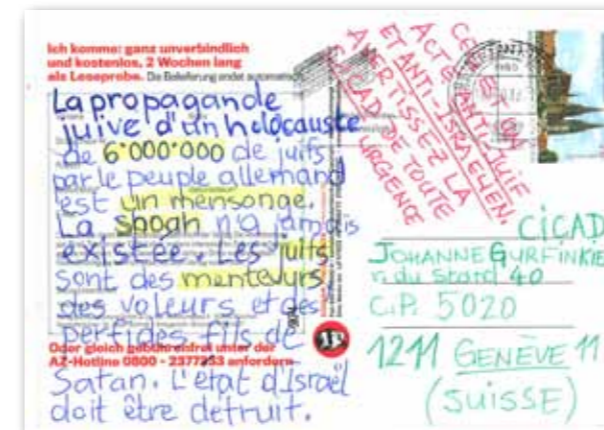 Ich komme: ganz unverbindlich
und kostenlos, 2 Wochen lang
als Leseprobe. Die Belieferung endet automatisch
La propagande
juive d'un holocauste
de 6'000'000 de juifs
par le peuple allemand
est un mensonge.
La shoah n'a jamais
existée. Les juifs
sont des menteurs
des voleurs et des
perfides fils de
Oder gleich gebührenfrei unter der
AZ-Hotline 0800 - 2377253 anfordern
Satan. L'état d'Israël
doit être detruit.
CECI EST UN
ACTE ANTI-JUIF
ET ANTI-ISRAELIEN.
AVERTISSEZ LA
CICAD DE TOUTE
URGENCE
CICAD
JOHANNE GURFINKIE
r. du Stand 40
C.P. 5020
1211 GENÈVE 11
(SUISSE)